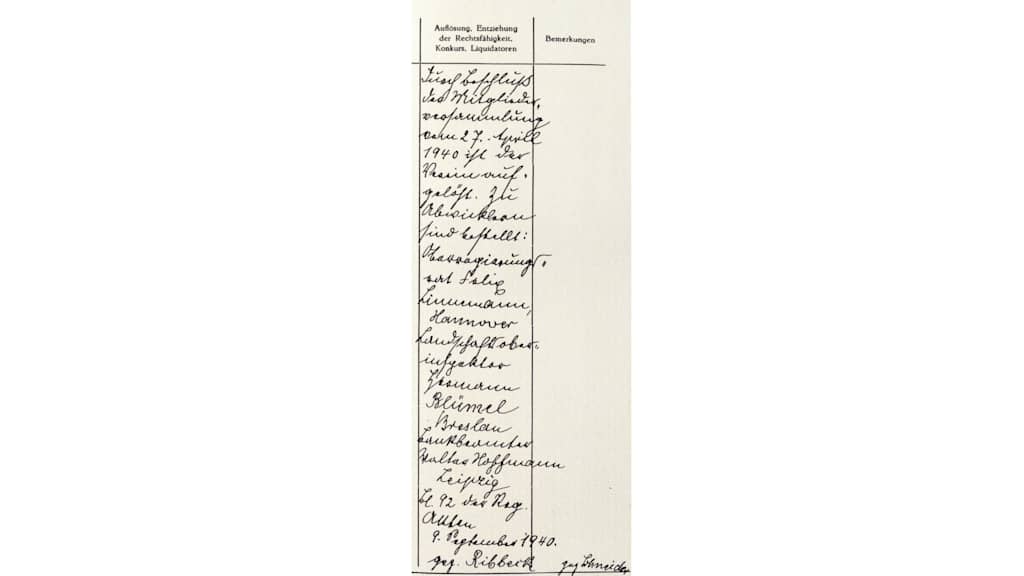 Auflösung, Entziehung
der Rechtsfähigkeit,
Konkurs, Liquidatoren
Bemerkungen
Durch Beschluß
der Mitglieder-
versammlung
vom 27. April
1940 ist der
Verein auf-
gelöst. Zu
Abwicklern
sind bestellt:
Oberregierungs-
rat Felix
Linnemann,
Hannover
Landschaftsober-
inspektor
Hermann
Blümel
Breslau
Bankbeamter
Walter Hoffmann
Leipzig
Bl. 92 der Reg.
Akten
9. September 1940.
gez. Ribbeck
gez Schneider